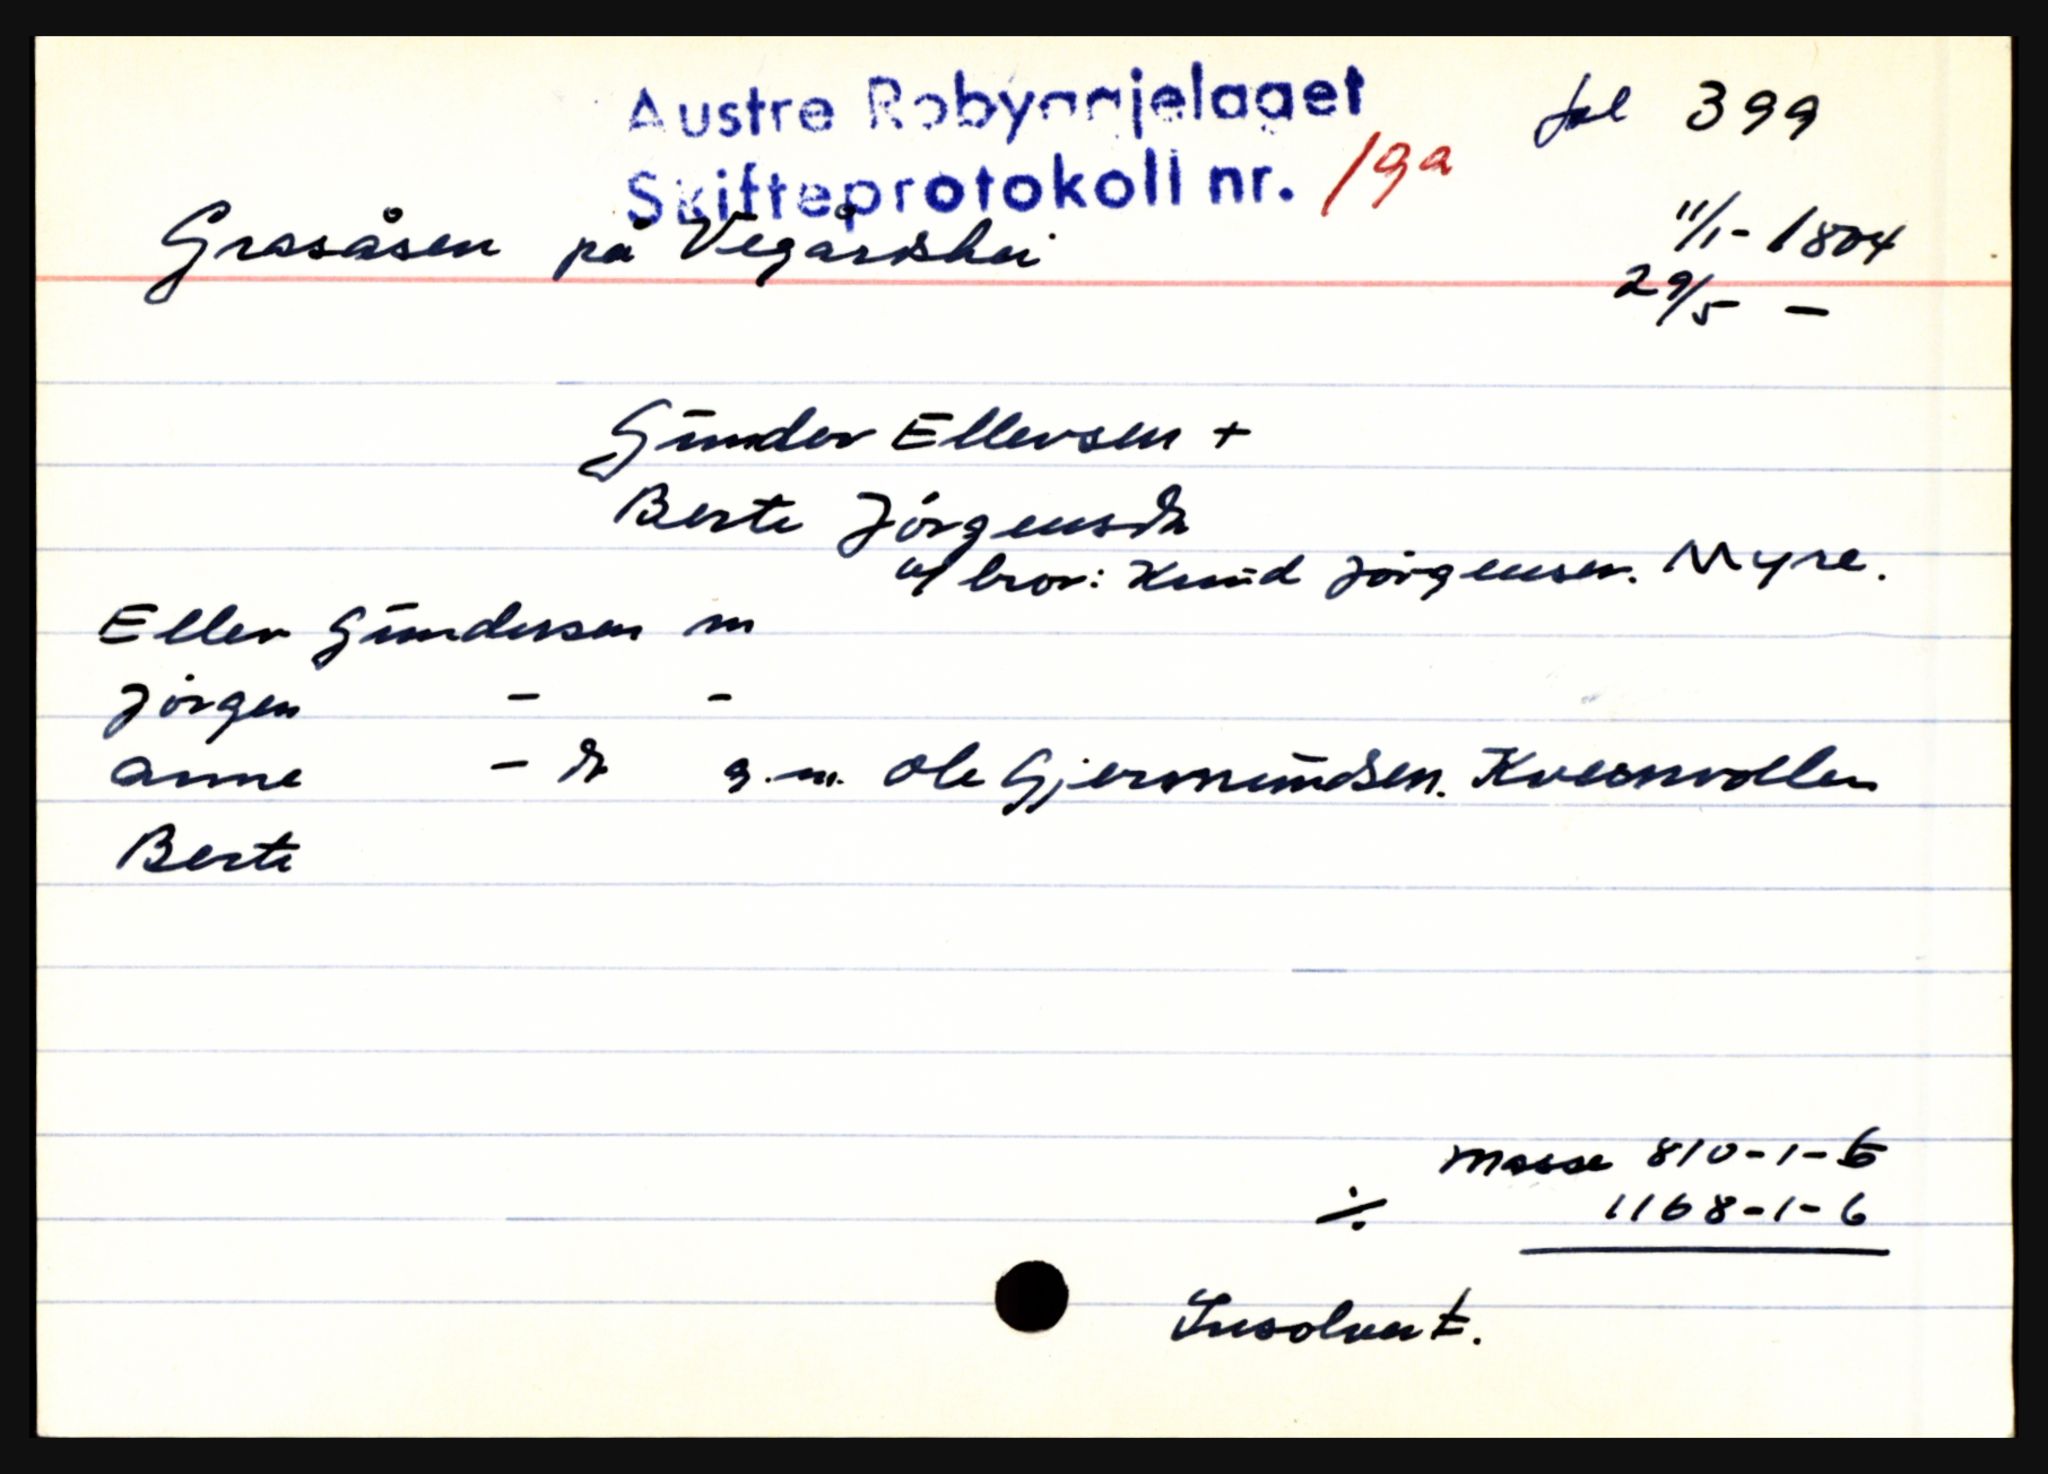 Austre Robyggjelaget fol 399
Skifteprotokoll nr. 19a
Grasåsen på Vegårdshei 11/1-1804
29/5 -
Gunder Ellevsen +
Berte Jörgensdr
m/ bror: Knud Jörgensen. Myre.
Ellev Gundersen m
Jörgen - -
Anne - dr g.m. Ole Gjermundsen. Kvennvollen
Berte
Masse 810-1-6
÷ 1168-1-6
Insolvent.